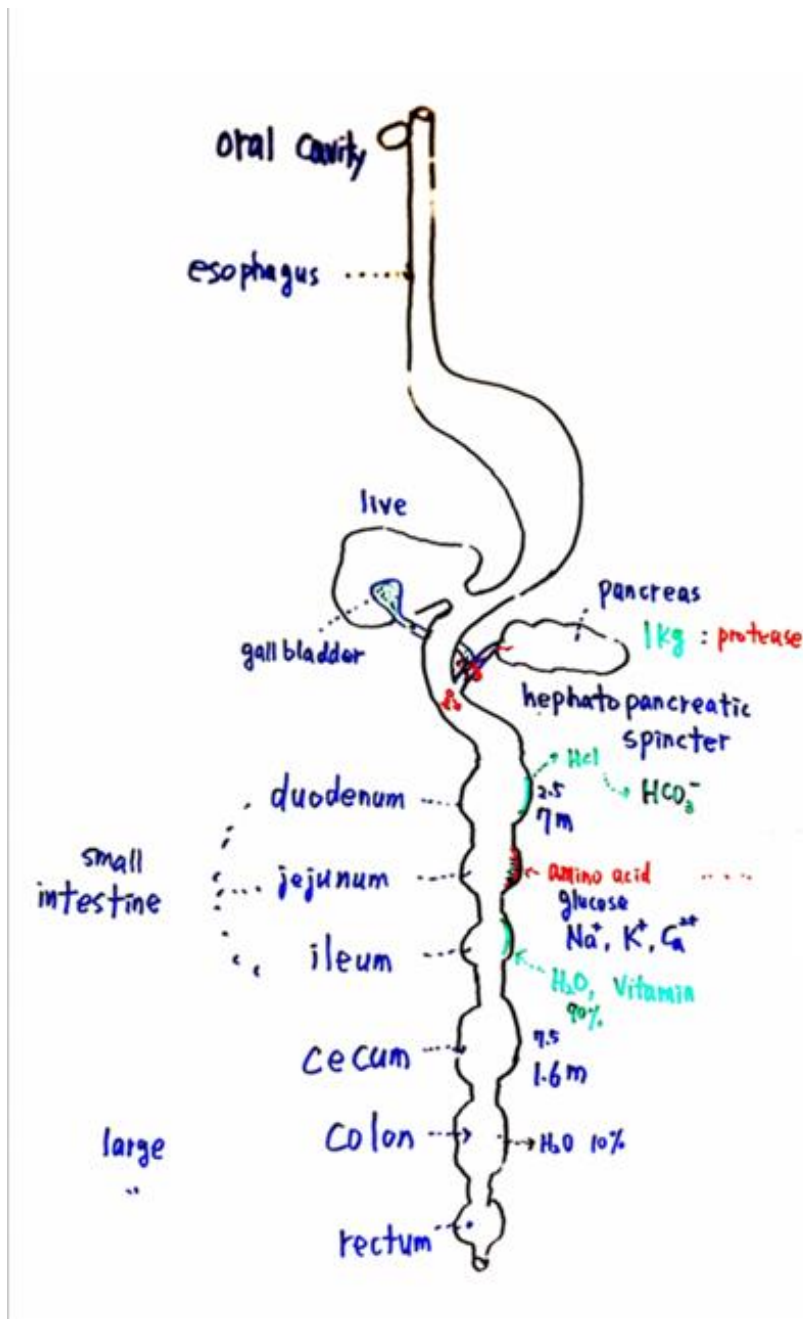 oral cavity
esophagus
live
gall bladder
pancreas
1kg : protease
hephatopancreatic
spincter
HCl
HCO₃⁻
duodenum
2.5
7m
small
intestine
jejunum
amino acid
glucose
Na⁺, K⁺, Ca²⁺
ileum
H₂O, Vitamin
90%
cecum
7.5
1.6m
large
〃
colon
H₂O 10%
rectum